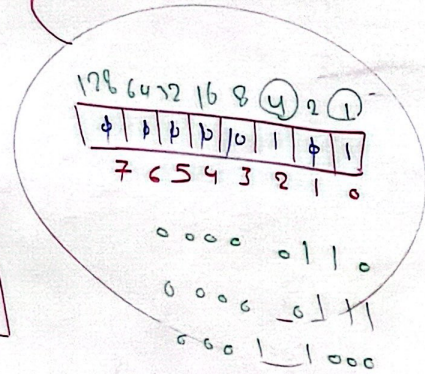 128 64 32 16 8 4 2 1
0 0 0 0 0 1 0 1
7 6 5 4 3 2 1 0
0000 0110
0000 0111
0001 1000